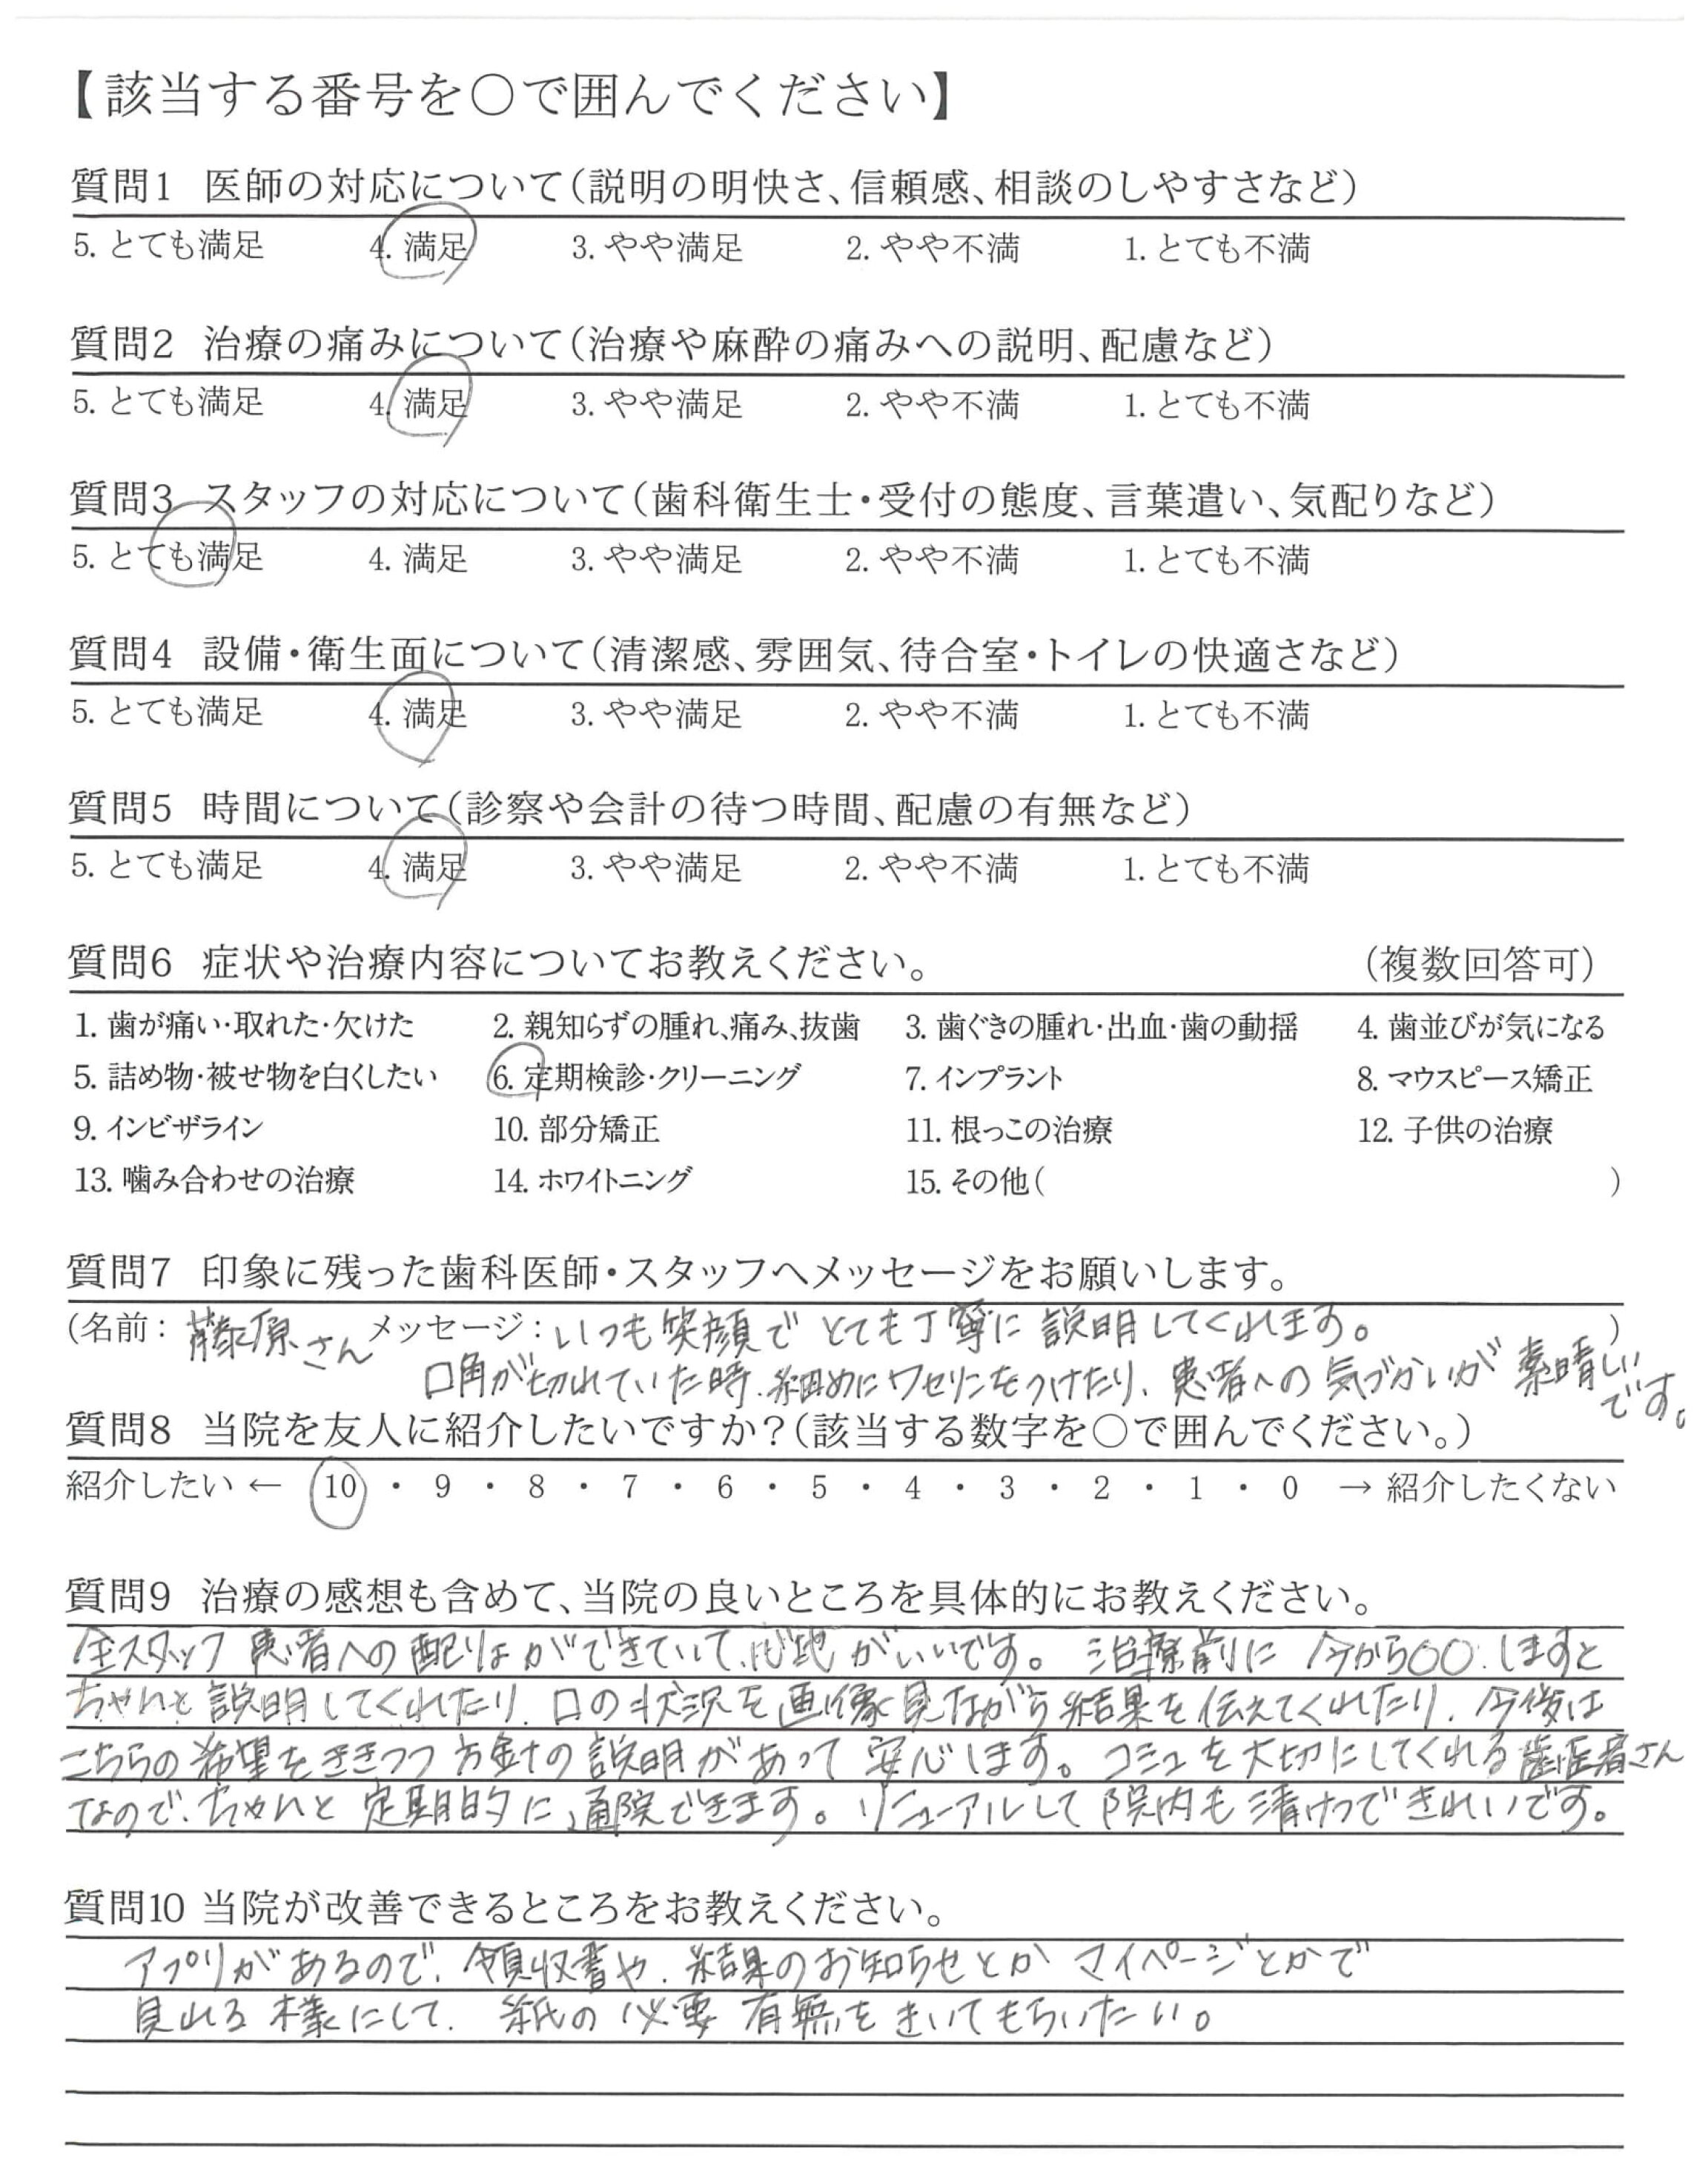 【該当する番号を○で囲んでください】
質問1 医師の対応について(説明の明快さ、信頼感、相談のしやすさなど)
5. とても満足 4. 満足 3. やや満足 2. やや不満 1. とても不満
質問2 治療の痛みについて(治療や麻酔の痛みへの説明、配慮など)
5. とても満足 4. 満足 3. やや満足 2. やや不満 1. とても不満
質問3 スタッフの対応について(歯科衛生士・受付の態度、言葉遣い、気配りなど)
5. とても満足 4. 満足 3. やや満足 2. やや不満 1. とても不満
質問4 設備・衛生面について(清潔感、雰囲気、待合室・トイレの快適さなど)
5. とても満足 4. 満足 3. やや満足 2. やや不満 1. とても不満
質問5 時間について(診察や会計の待つ時間、配慮の有無など)
5. とても満足 4. 満足 3. やや満足 2. やや不満 1. とても不満
質問6 症状や治療内容についてお教えください。 (複数回答可)
1. 歯が痛い・取れた・欠けた 2. 親知らずの腫れ、痛み、抜歯 3. 歯ぐきの腫れ・出血・歯の動揺 4. 歯並びが気になる
5. 詰め物・被せ物を白くしたい 6. 定期検診・クリーニング 7. インプラント 8. マウスピース矯正
9. インビザライン 10. 部分矯正 11. 根っこの治療 12. 子供の治療
13. 噛み合わせの治療 14. ホワイトニング 15. その他( )
質問7 印象に残った歯科医師・スタッフへメッセージをお願いします。
(名前: 藤原さん メッセージ: いつも笑顔で とても丁寧に 説明してくれます。 )
口角が切れていた時、細めにワセリンをつけたり、患者への気づかいが素晴しい
です。
質問8 当院を友人に紹介したいですか?(該当する数字を○で囲んでください。)
紹介したい ← 10 ・ 9 ・ 8 ・ 7 ・ 6 ・ 5 ・ 4 ・ 3 ・ 2 ・ 1 ・ 0 → 紹介したくない
質問9 治療の感想も含めて、当院の良いところを具体的にお教えください。
全スタッフ 患者への配りょができていて、心地がいいです。 治療前に 今から○○しますと
ちゃんと説明してくれたり、口の状況を画像見ながら結果を伝えてくれたり、今後は
こちらの希望をききつつ方針の説明があって安心します。コミュを大切にしてくれる歯医者さん
なので、ちゃんと定期的に通院できます。リニューアルして院内も清けつできれいです。
質問10 当院が改善できるところをお教えください。
アプリがあるので、領収書や、結果のお知らせとか マイページとかで
見れる様にして、紙の必要有無をきいてもらいたい。